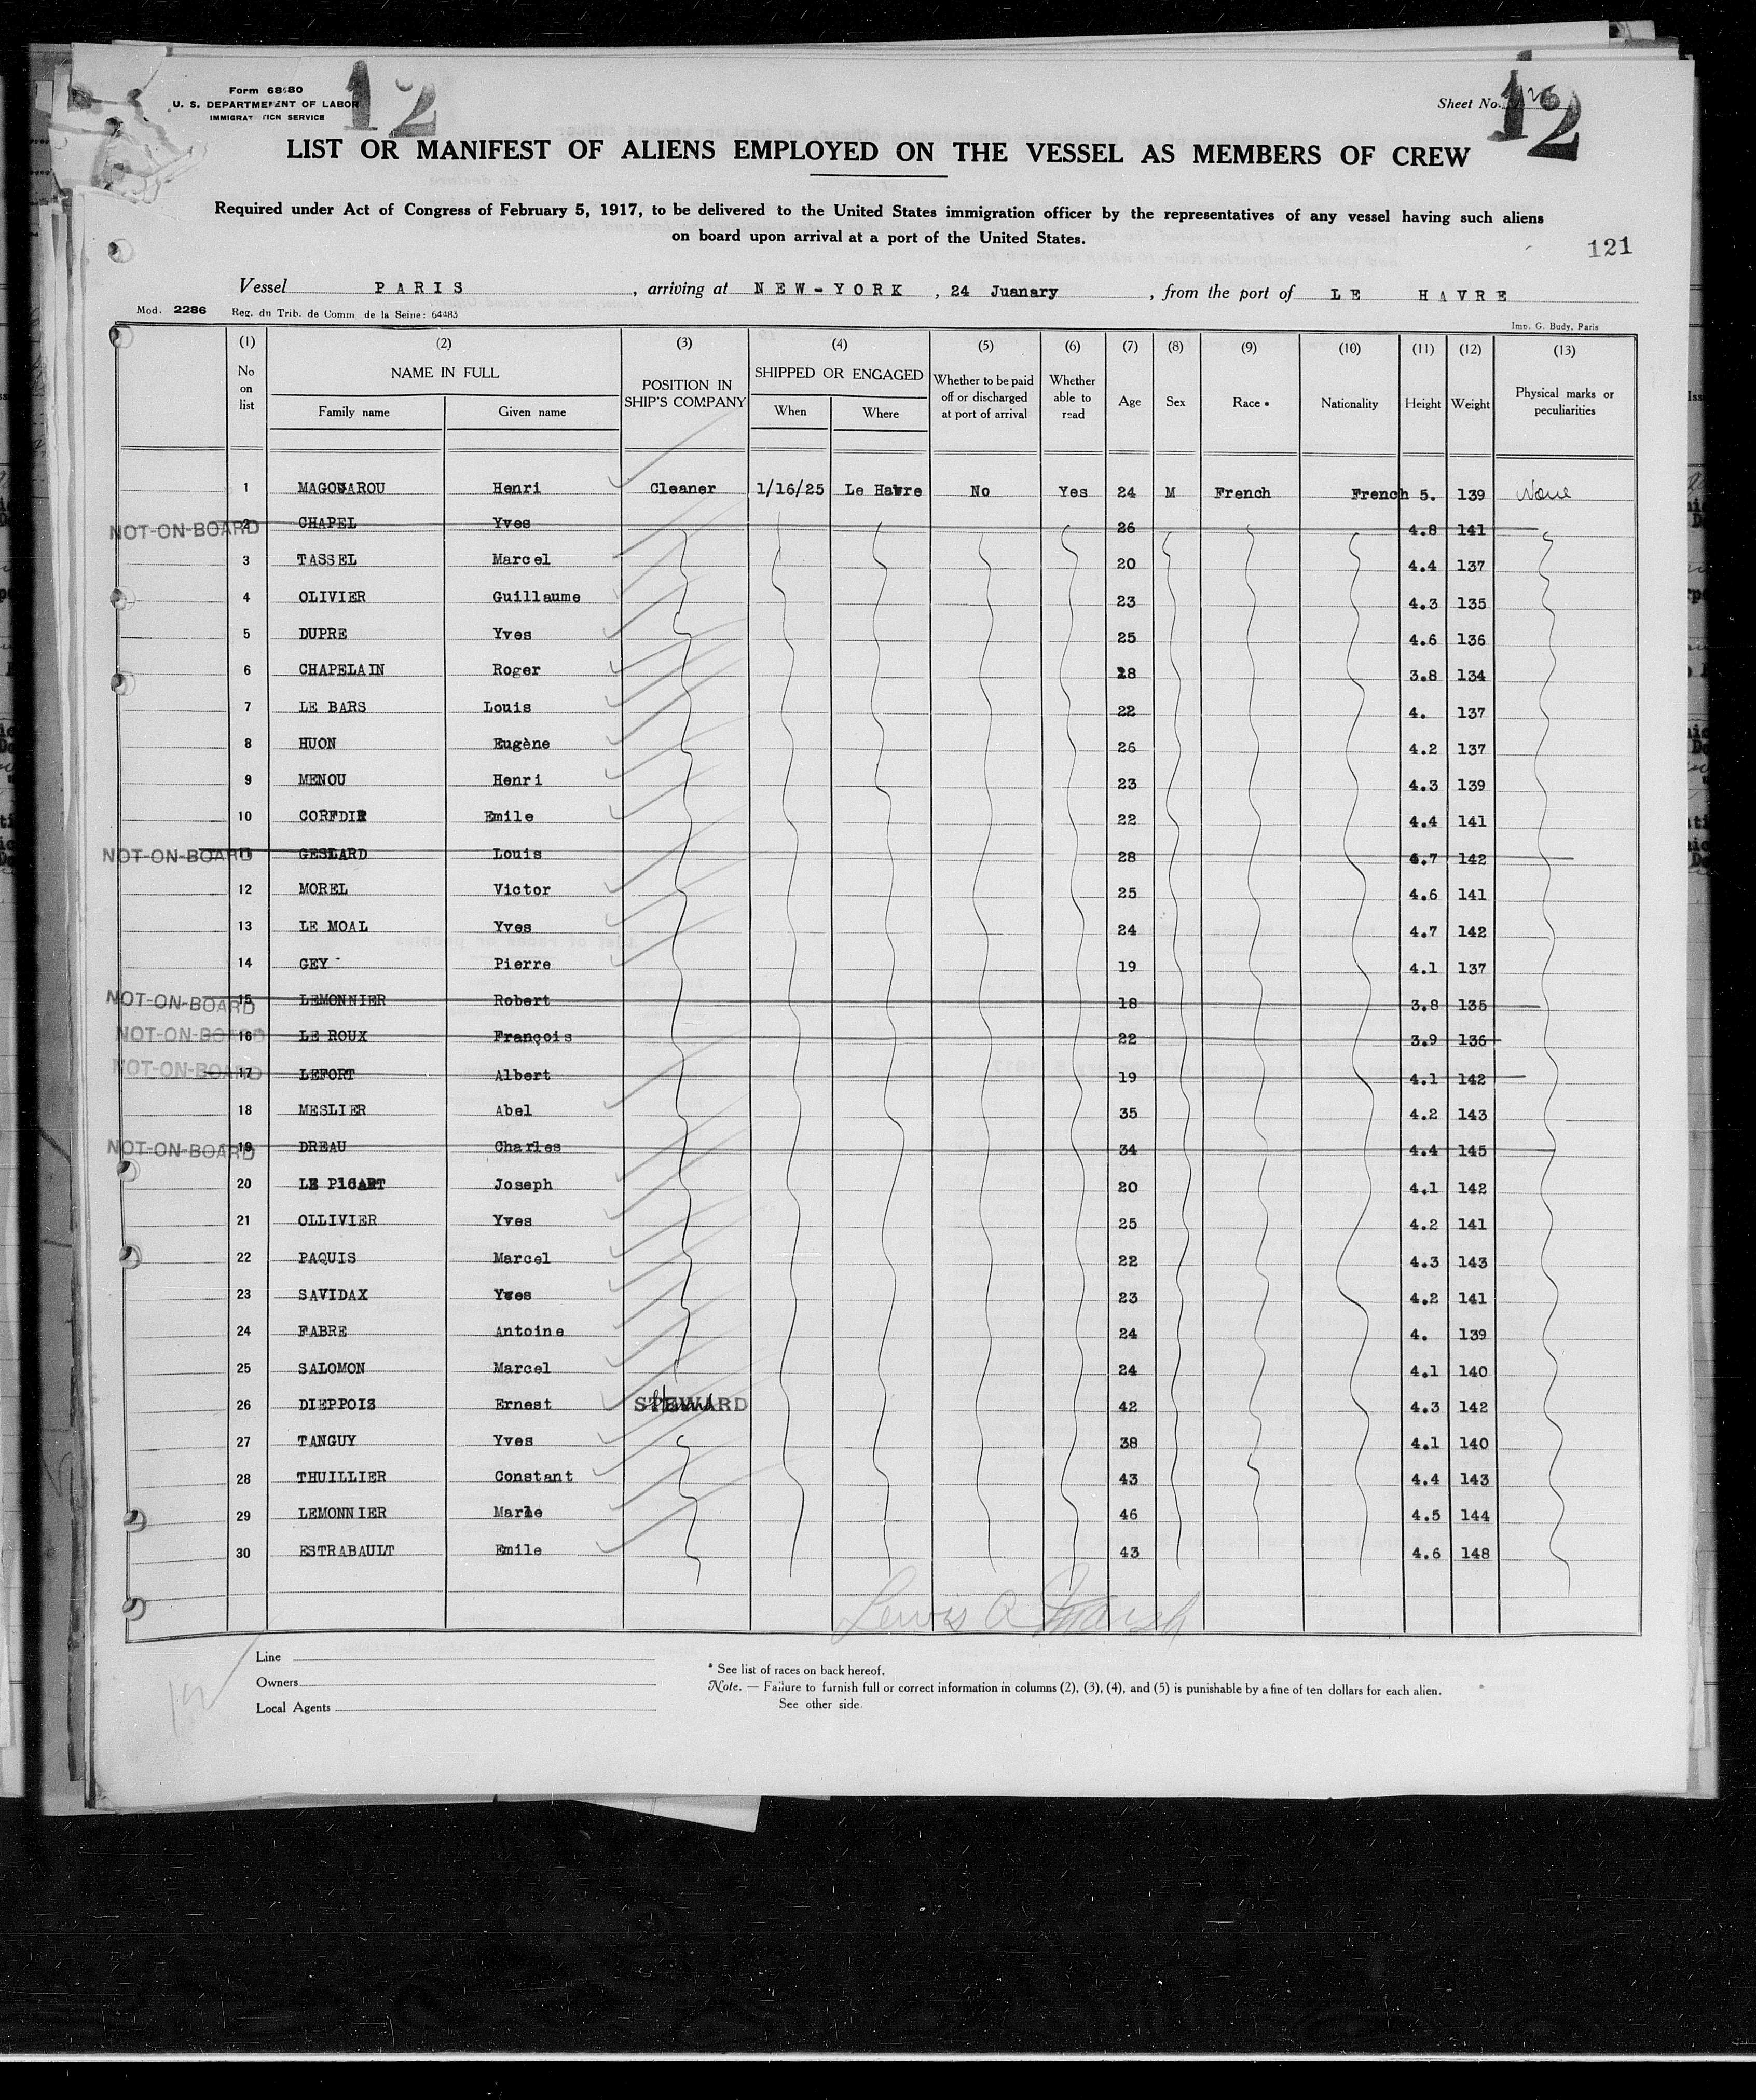 12
Form 68080
U. S. DEPARTMENT OF LABOR
IMMIGRATION SERVICE
Sheet No.
12
LIST OR MANIFEST OF ALIENS EMPLOYED ON THE VESSEL AS MEMBERS OF CREW
Required under Act of Congress of February 5, 1917, to be delivered to the United States immigration officer by the representatives of any vessel having such aliens
on board upon arrival at a port of the United States.
121
Vessel PARIS, arriving at NEW-YORK, 24 Juanary, from the port of LE HAVRE
Mod. 2286 Reg. du Trib. de Comm de la Seine: 64483
Imp. G. Budy, Paris
(1) (2) (3) (4) (5) (6) (7) (8) (9) (10) (11) (12) (13)
No on list NAME IN FULL Family name Given name POSITION IN SHIP'S COMPANY SHIPPED OR ENGAGED When Where Whether to be paid off or discharged at port of arrival Whether able to read Age Sex Race * Nationality Height Weight Physical marks or peculiarities
1 MAGOUAROU Henri Cleaner 1/16/25 Le Havre No Yes 24 M French French 5. 139 None
NOT-ON-BOARD 2 CHAPEL Yves 26 4.8 141
3 TASSEL Marcel 20 4.4 137
4 OLIVIER Guillaume 23 4.3 135
5 DUPRE Yves 25 4.6 136
6 CHAPELAIN Roger 18 3.8 134
7 LE BARS Louis 22 4. 137
8 HUON Eugène 26 4.2 137
9 MENOU Henri 23 4.3 139
10 CORFDIR Emile 22 4.4 141
NOT-ON-BOARD 11 GESLARD Louis 28 4.7 142
12 MOREL Victor 25 4.6 141
13 LE MOAL Yves 24 4.7 142
14 GEY Pierre 19 4.1 137
NOT-ON-BOARD 15 LEMONNIER Robert 18 3.8 135
NOT-ON-BOARD 16 LE ROUX François 22 3.9 136
NOT-ON-BOARD 17 LEFORT Albert 19 4.1 142
18 MESLIER Abel 35 4.2 143
NOT-ON-BOARD 19 DREAU Charles 34 4.4 145
20 LE PICART Joseph 20 4.1 142
21 OLLIVIER Yves 25 4.2 141
22 PAQUIS Marcel 22 4.3 143
23 SAVIDAX Yves 23 4.2 141
24 FABRE Antoine 24 4. 139
25 SALOMON Marcel 24 4.1 140
26 DIEPPOIS Ernest STEWARD 42 4.3 142
27 TANGUY Yves 38 4.1 140
28 THUILLIER Constant 43 4.4 143
29 LEMONNIER Marie 46 4.5 144
30 ESTRABAULT Emile 43 4.6 148
Lewis A Marsh
Line
Owners
Local Agents
* See list of races on back hereof.
Note. — Failure to furnish full or correct information in columns (2), (3), (4), and (5) is punishable by a fine of ten dollars for each alien.
See other side.